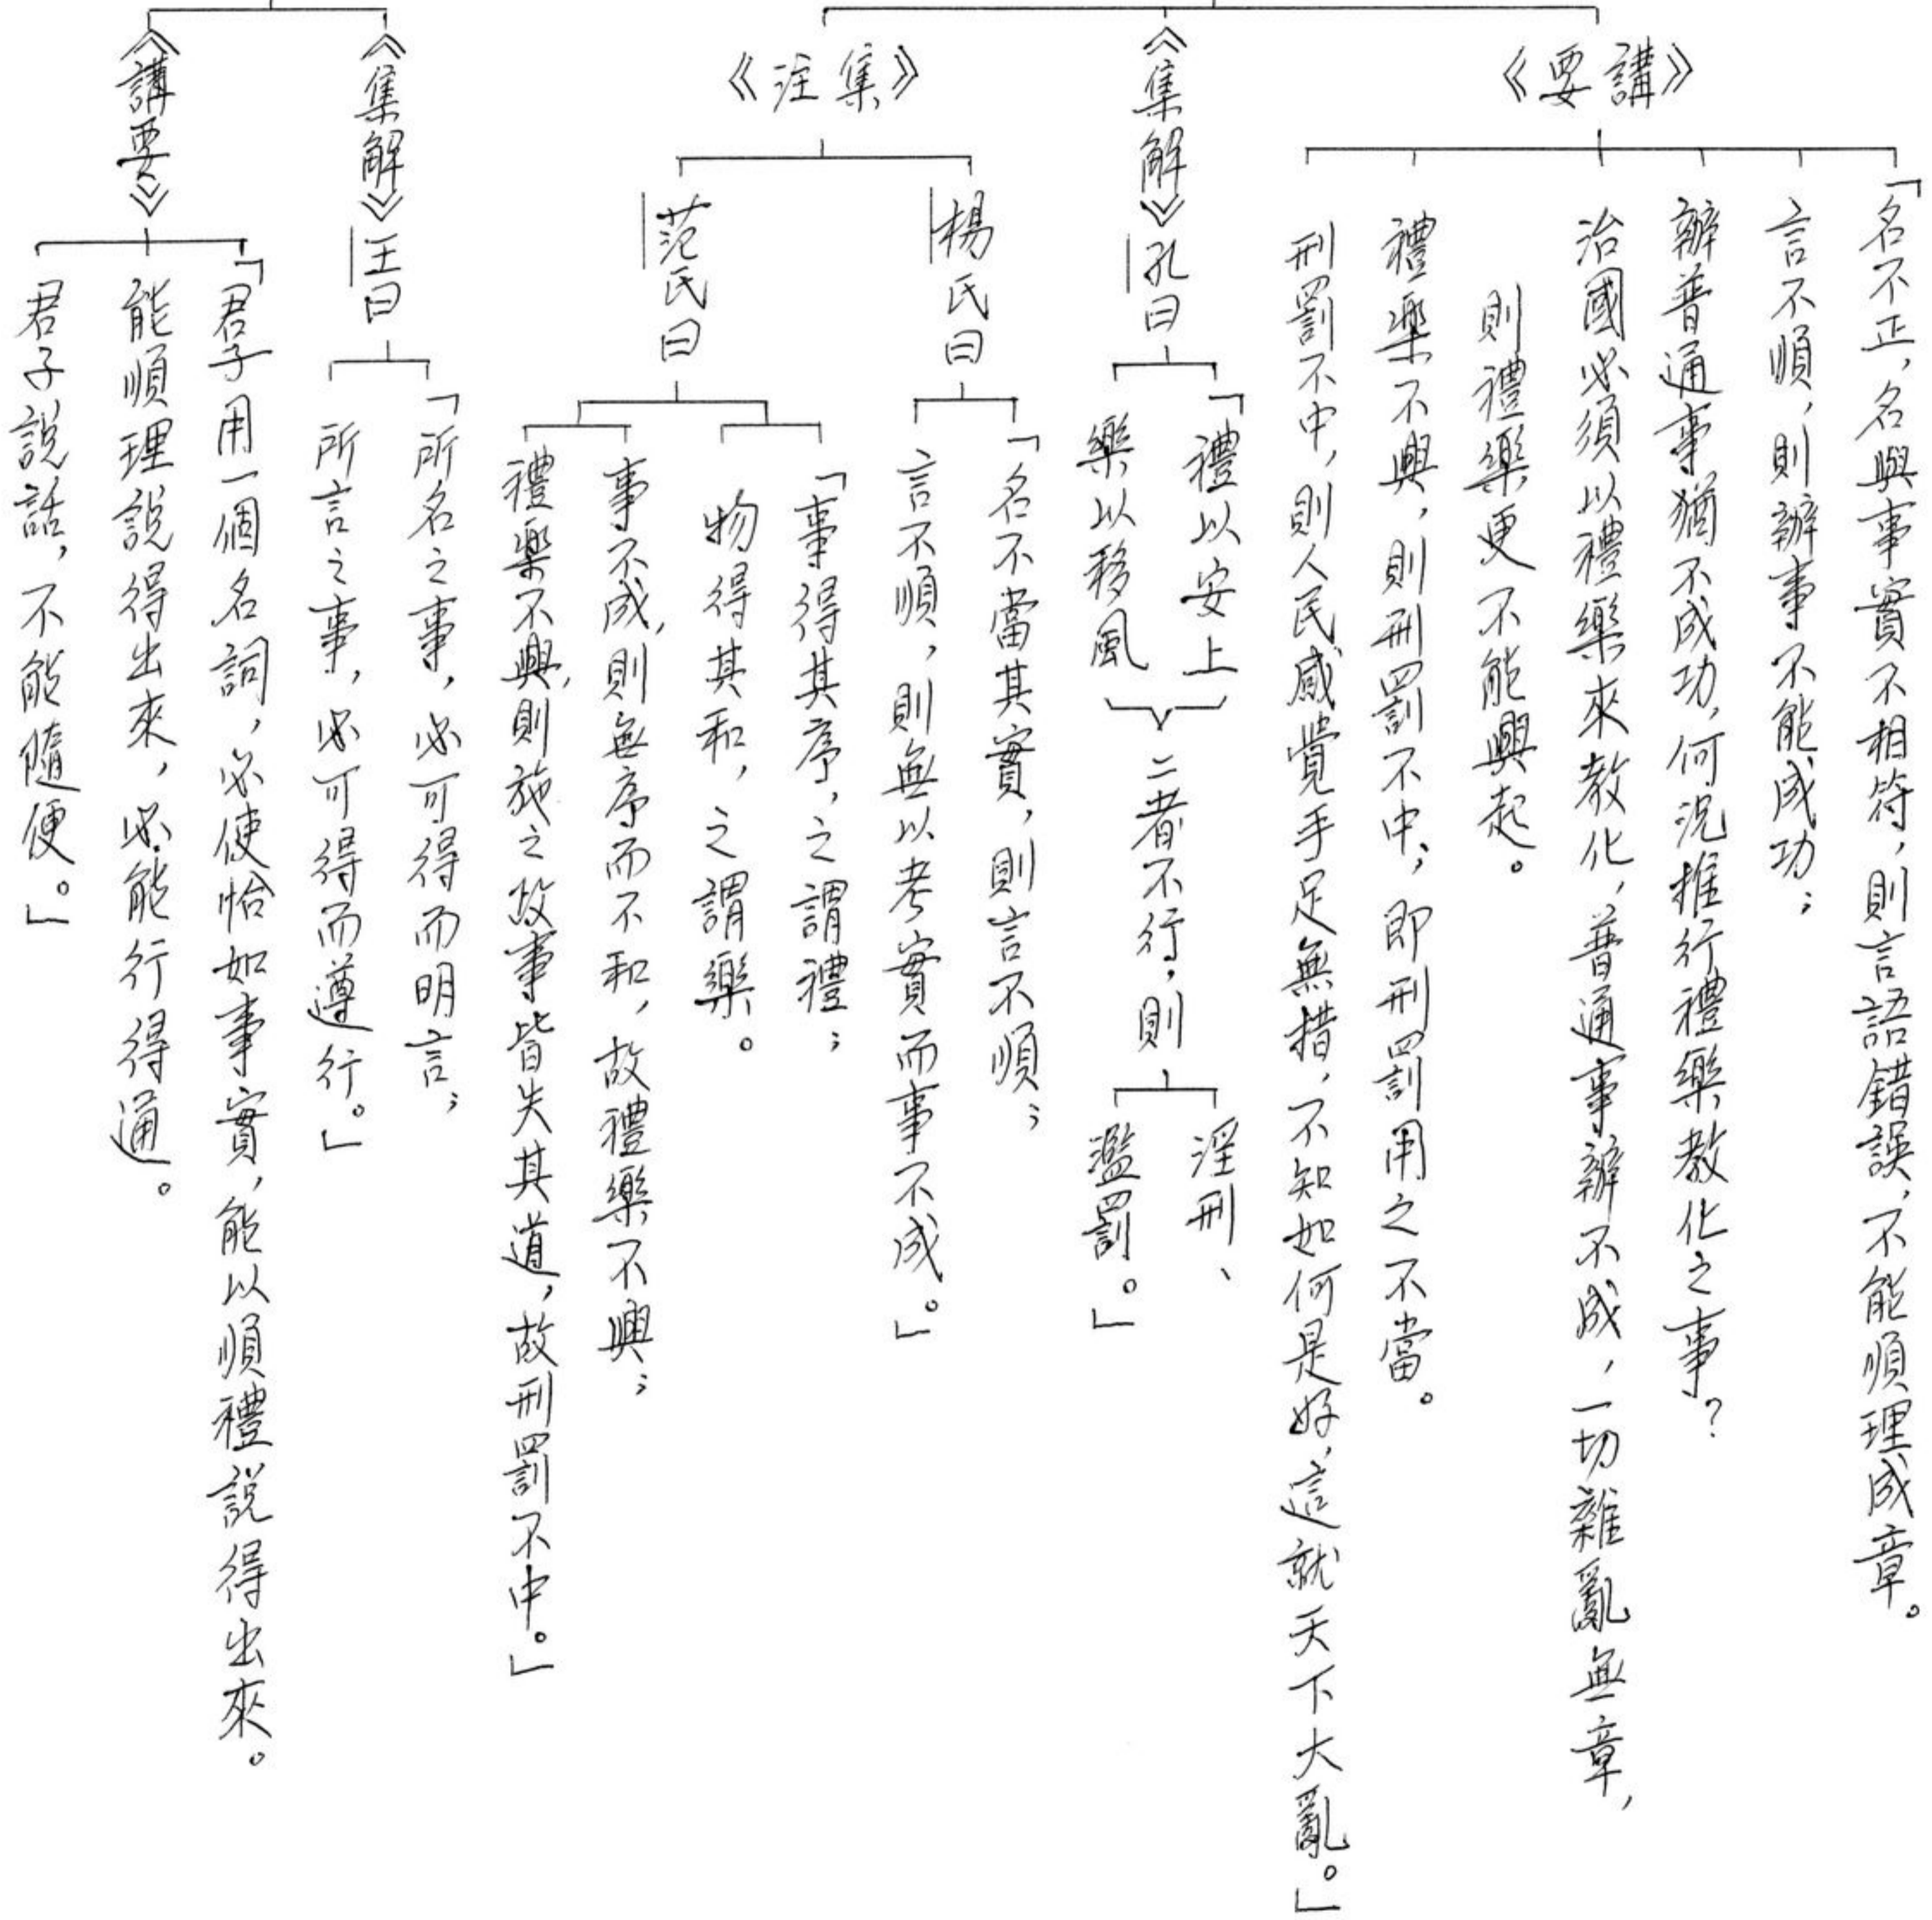 《講要》
「名不正，名與事實不相符，則言語錯誤，不能順理成章。
言不順，則辦事不能成功；
辦普通事猶不成功，何況推行禮樂教化之事？
治國必須以禮樂來教化，普通事辦不成，一切雜亂無章，
則禮樂更不能興起。
禮樂不興，則刑罰不中，即刑罰用之不當。
刑罰不中，則人民感覺手足無措，不知如何是好，這就天下大亂。」
《集解》孔曰
「禮以安上
樂以移風
二者不行，則
淫刑、
濫罰。」
《集注》
楊氏曰
「名不當其實，則言不順；
言不順，則無以考實而事不成。」
范氏曰
「事得其序，之謂禮；
物得其和，之謂樂。
事不成，則無序而不和，故禮樂不興；
禮樂不興，則施之政事皆失其道，故刑罰不中。」
《集解》王曰
「所名之事，必可得而明言；
所言之事，必可得而遵行。」
《講要》
「君子用一個名詞，必使恰如事實，能以順禮說得出來。
能順理說得出來，必能行得通。
君子說話，不能隨便。」